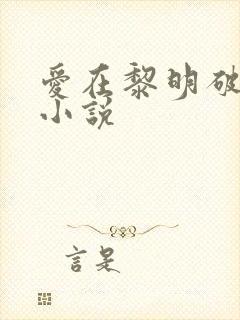 愛在黎明破
小說
言是